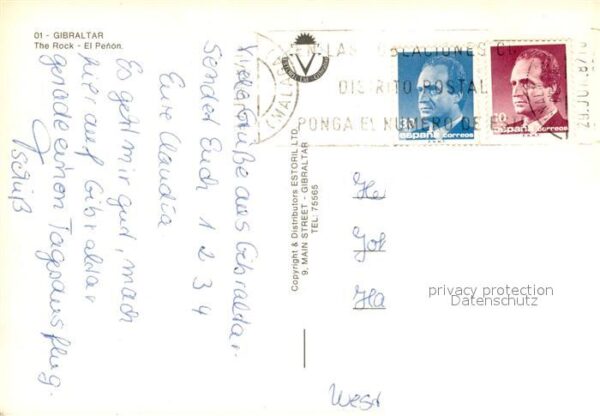 01 - GIBRALTAR
The Rock - El Peñón.
Viele Grüße aus Gibraltar
sendet Euch 1 2 3 4
Eure Claudia.
Es geht mir gut, mach
hier auf Gibraltar
gerade einen Tagesausflug.
Tschüß
Copyright & Distributors ESTORIL LTD
9, MAIN STREET - GIBRALTAR
TEL: 75565
EN LAS
DISTRITO POSTAL
PONGA EL NUMERO DE
MALAGA
españa correos
españa correos
He
Jol
Ha
West
privacy protection
Datenschutz